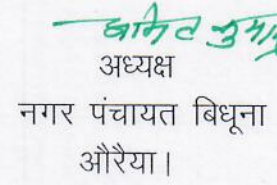 अध्यक्ष
नगर पंचायत बिधूना
औरैया।